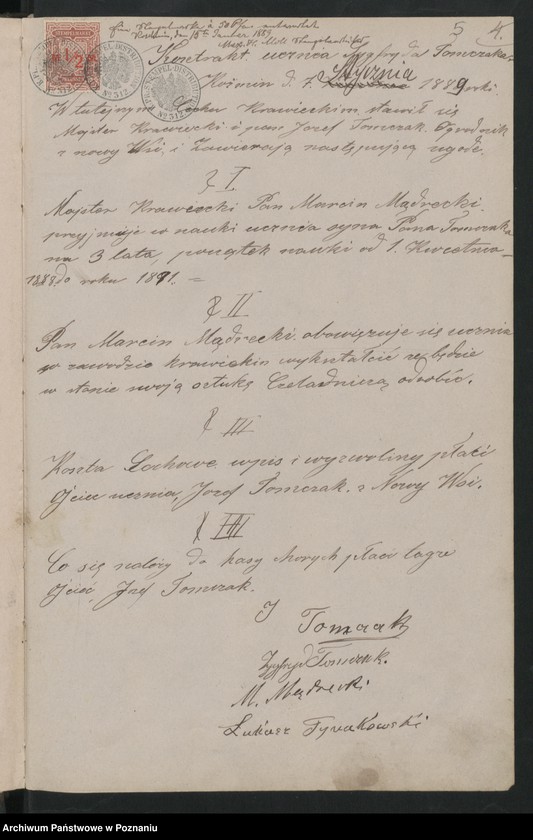 5 4.
à 50 Pfen.
den 18 Januar 1889
Kontrakt ucznia Zygfryda Tomczaka
Koźmin d. 7. Stycznia 1889 roku.
W tutejszym Cechu Krawieckim stawił się
Majster Krawiecki i pan Jozef Tomczak. Ogrodnik
z nowy Wsi, i Zawierają następującą ugodę.
§ I.
Majster Krawiecki Pan Marcin Mądrecki
przyjmuje w nauki ucznia syna Pana Tomczaka
na 3 lata, początek nauki od 1. Kwietnia
1888 do roku 1891. =
§ II
Pan Marcin Mądrecki obowięzuje się ucznia
w zawodzie krawieckim wykształcić że będzie
w stanie swoją sztukę Czeladniczą odrobić.
§ III
Koszta Cechowe wpis i wyzwoliny płaci
Ojciec ucznia, Jozef Tomczak z Nowy Wsi.
§ IIII
Co się należy do kasy chorych płaci
Ojciec, Jozef Tomczak.
J Tomczak
Zygfryd Tomczak.
M. Mądrecki
Łukasz
№ 512
Archiwum Państwowe w Poznaniu